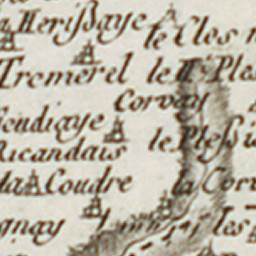 a Herißaye
le Clos
Tremerel le
Corvay
eudiaye
le Pleßi
Ricandais
la Coudre
la Corv
gnay
les